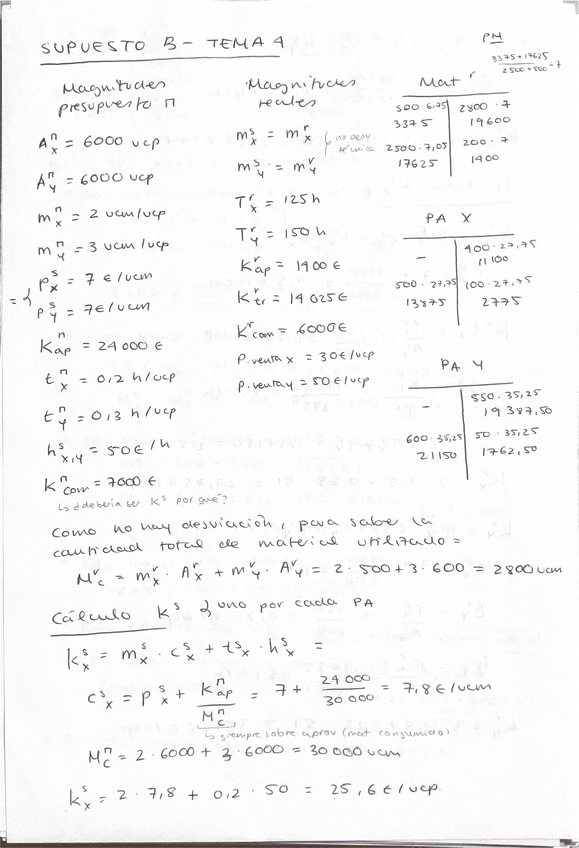 SUPUESTO B - TEMA 4
Magnitudes presupuesto n
A^n_x = 6000 ucp
A^n_y = 6000 ucp
m^n_x = 2 ucm/ucp
m^n_y = 3 ucm/ucp
= { p^s_x = 7 €/ucm
p^s_y = 7€/ucm
K^n_ap = 24 000 €
t^n_x = 0,2 h/ucp
t^n_y = 0,3 h/ucp
h^s_x,y = 50€/h
K^n_com = 7000 €
↳ ¿debería ser K^s por qué?
Magnitudes reales
m^s_x = m^r_x { no desv. técnica
m^s_y = m^r_y
T^r_x = 125 h
T^r_y = 150 h
K^r_ap = 1400 €
K^r_tr = 14 025 €
K^r_com = 6000€
P.venta x = 30€/ucp
P.venta y = 50€/ucp
PM
3375+17625 / 2500+500 = 7
Mat^r
500·6,75 | 2800·7
3375 | 19600
2500·7,05 | 200·7
17625 | 1400
PA X
— | 400·27,75
11100
500·27,75 | 100·27,75
13875 | 2775
PA Y
— | 550·35,25
19 387,50
600·35,25 | 50·35,25
21150 | 1762,50
Como no hay desviación, para saber la
cantidad total de material utilizado =
M^r_c = m^r_x · A^r_x + m^r_y · A^r_y = 2·500 + 3·600 = 2800 ucm
Cálculo K^s } uno por cada PA
k^s_x = m^s_x · c^s_x + t^s_x · h^s_x =
c^s_x = p^s_x + K^n_ap / M^n_c = 7 + 24 000 / 30 000 = 7,8 €/ucm
↳ siempre sobre aprov (mat consumido)
M^n_c = 2·6000 + 3·6000 = 30 000 ucm
k^s_x = 2 · 7,8 + 0,2 · 50 = 25,6 €/ucp.